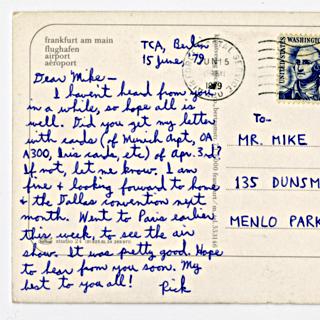 frankfurt am main
flughafen
airport
aéroport
TCA, Berlin
15 June '79
Dear Mike —
I haven't heard from you
in a while, so hope all is
well. Did you get my letter
with cards (of Munich apt, OA
A300, Iris cards, etc) of Apr. 3rd?
If not, let me know. I am
fine & looking forward to home
& the Dallas convention next
month. Went to Paris earlier
this week, to see the air
show. It was pretty good. Hope
to hear from you soon. My
best to you all!
Rick
studio 24
JUN 15
1979
UNITED STATES
WASHINGTON
To-
MR. MIKE
135 DUNSM
MENLO PARK